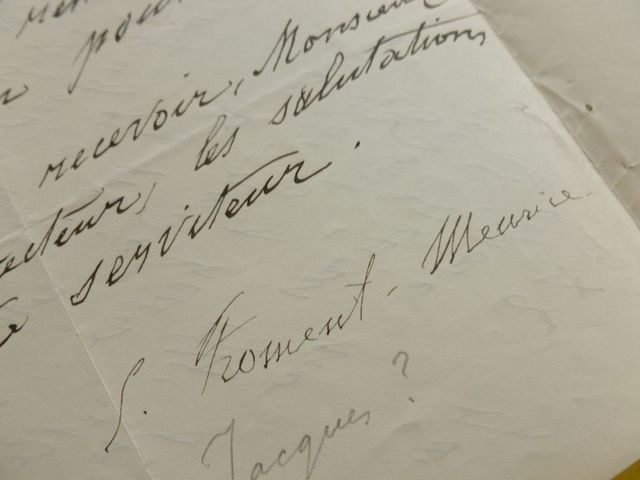 pour
recevoir, Monsieur
recteur, les salutations
serviteur.
J. Froment-Meurice
Jacques ?